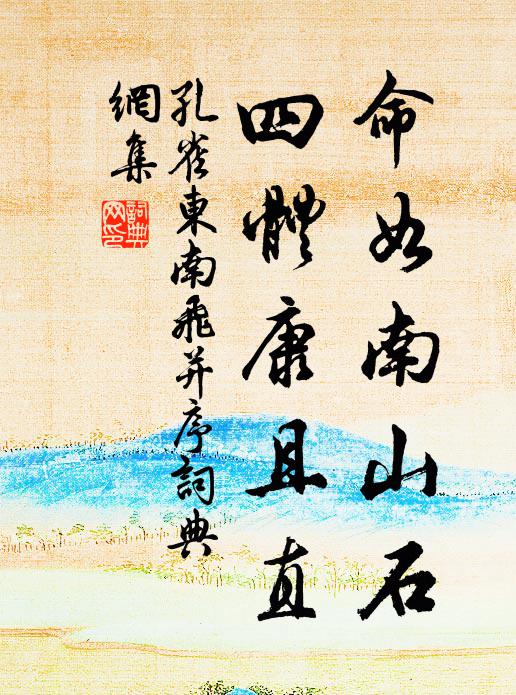 命如南山石
四體康且直
孔雀東南飛并序詞典
網集
詞典
網印